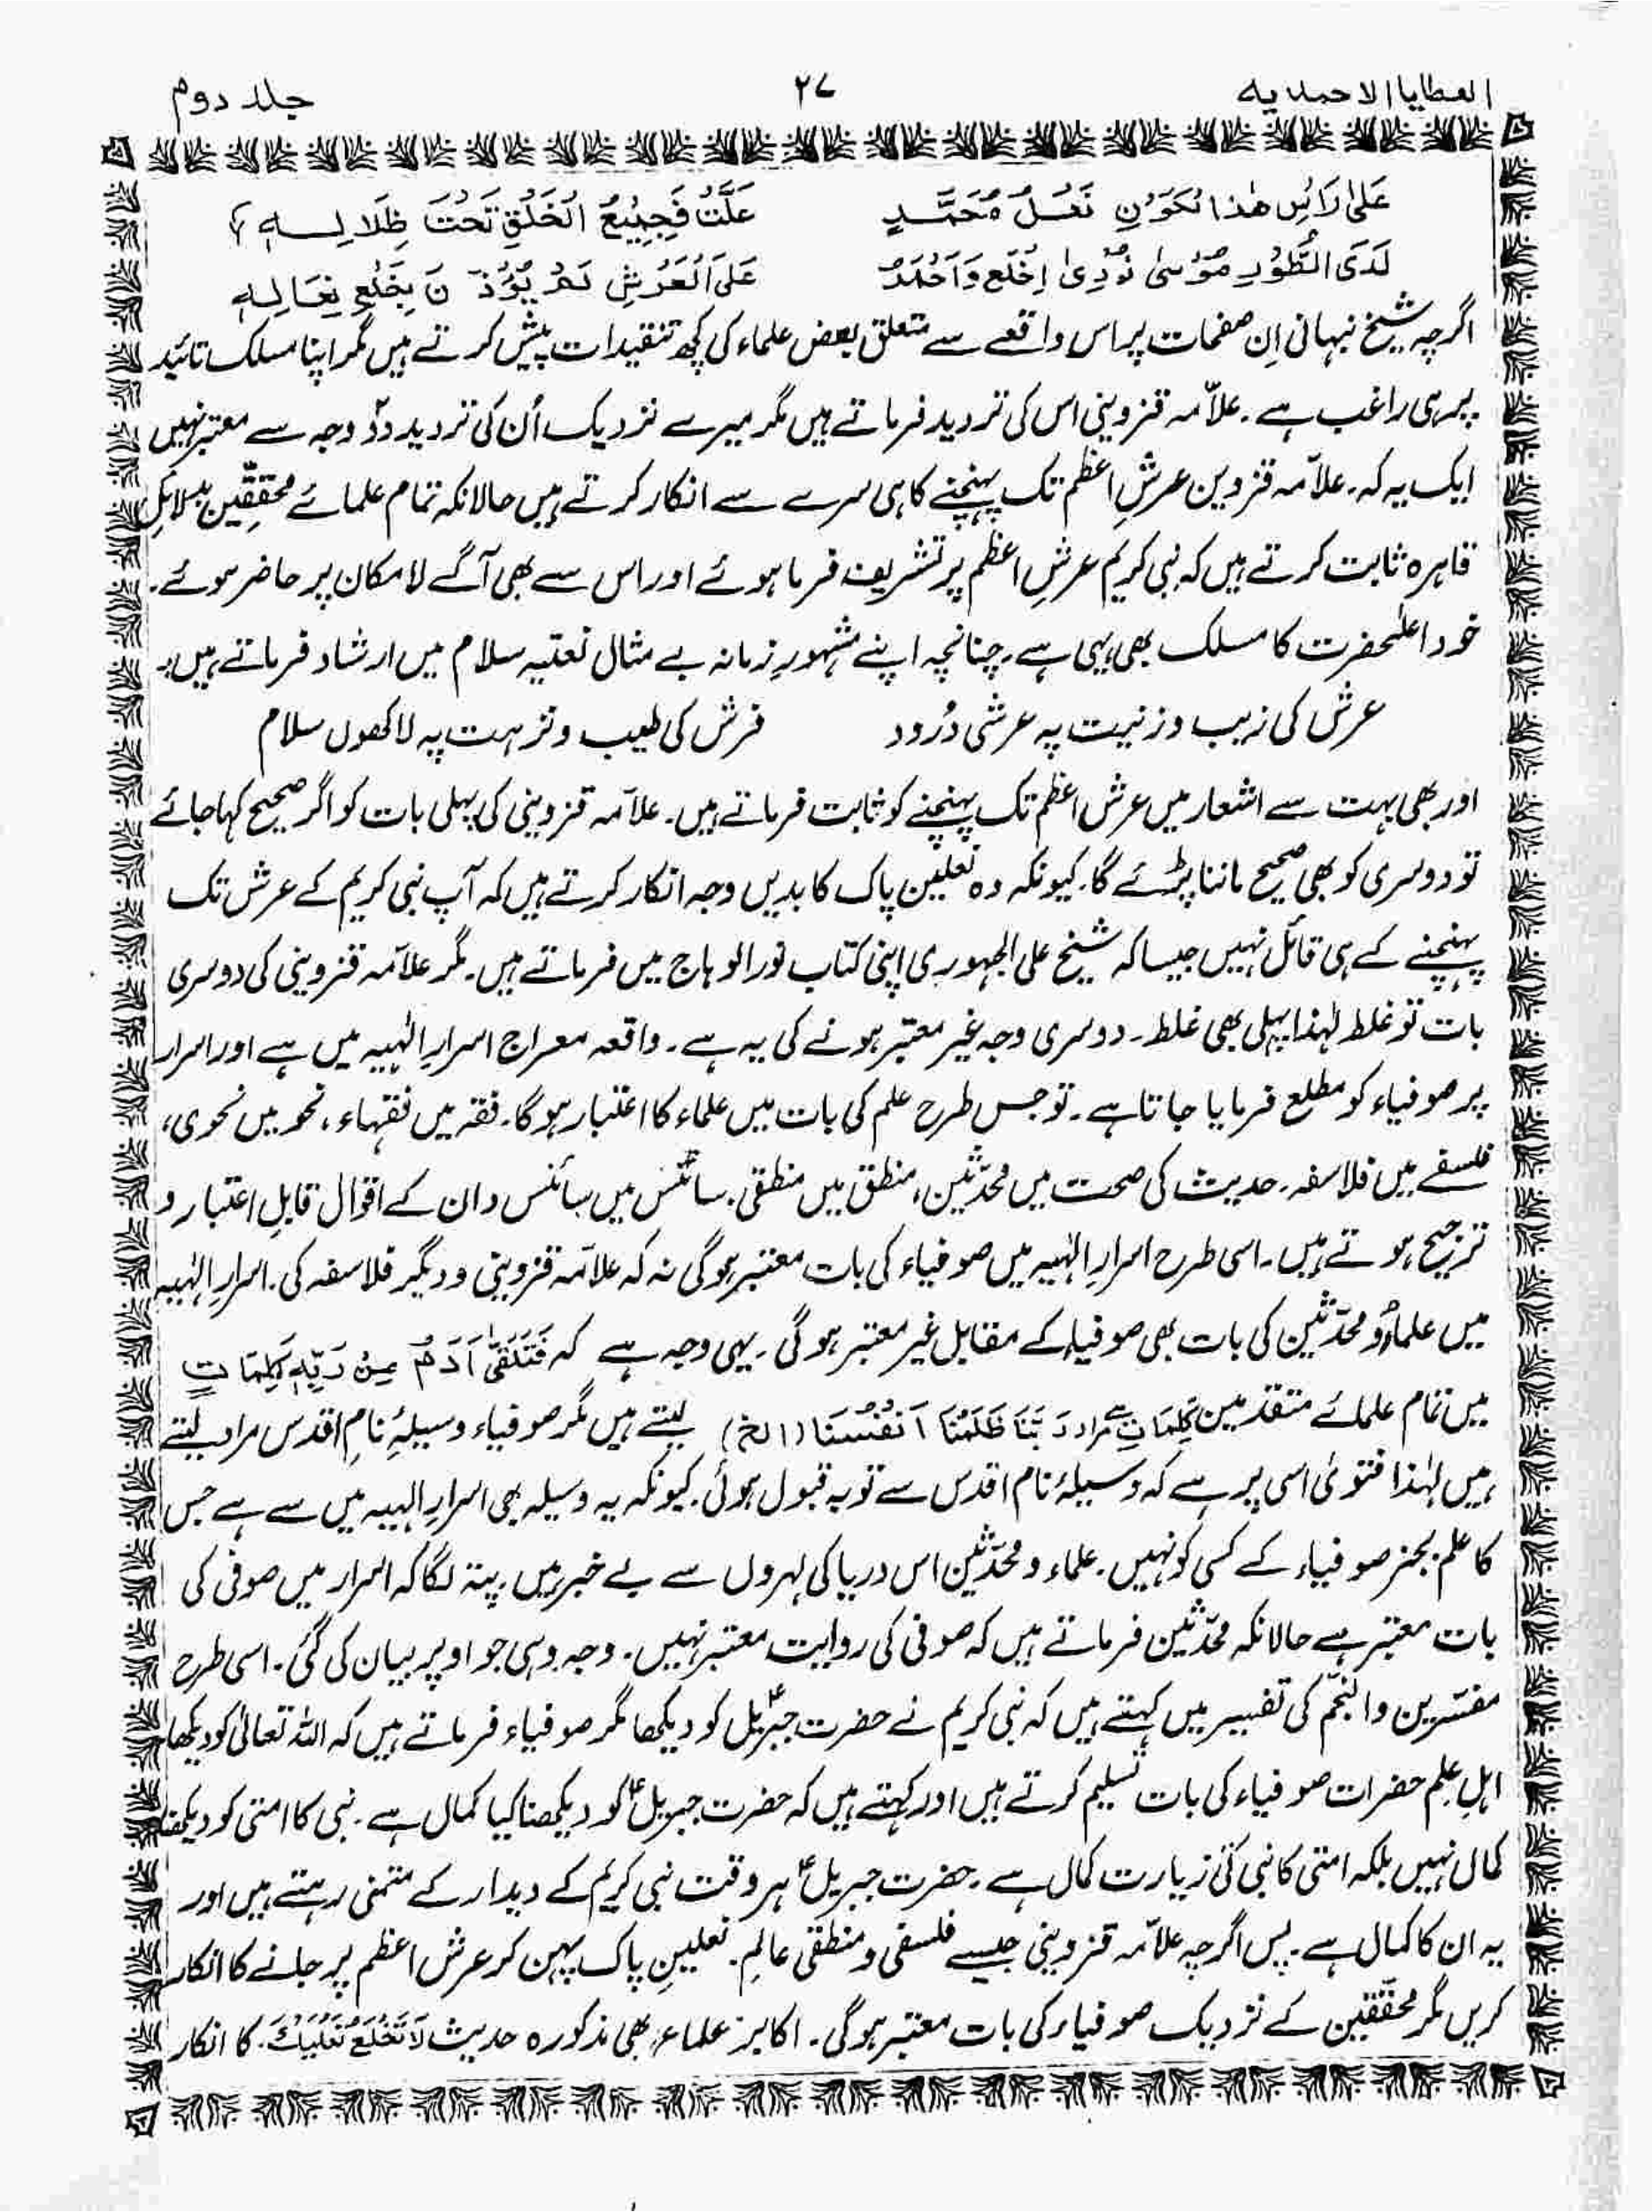 العطایا الاحمدیه ۲۷ جلد دوم
عَلیٰ رَائْسِ هٰذا لْکَوْنِ نَعْلُ مُحَمَّدٍ عَلَّتْ فَجَمِیْعُ الْخَلْقِ تَحْتَ ظِلَالِہٖ
لَدَی الطُّوْرِ مُوْسیٰ نُوْدِیَ اِخْلَعْ وَاَحْمَدُ عَلَی الْعَرْشِ لَمْ یُؤْذَنْ بِخَلْعِ نِعَالِہٖ
اگرچہ شیخ نبہانی اِن صفحات پر اس واقعے سے متعلق بعض علماء کی کچھ تنقیدات پیش کرتے ہیں مگر اپنا مسلک تائید
پر ہی راغب ہے۔ علاّمہ قزوینی اس کی تردید فرماتے ہیں مگر میرے نزدیک اُن کی تردید دوّ وجہ سے معتبر نہیں
ایک یہ کہ۔ علاّمہ قزوین عرشِ اعظم تک پہنچنے کا ہی سرے سے انکار کرتے ہیں حالانکہ تمام علمائے محققِین بدلائلِ
قاہرہ ثابت کرتے ہیں کہ نبی کریم عرشِ اعظم پر تشریف فرما ہوئے اور اس سے بھی آگے لامکان پر حاضر ہوئے۔
خود اعلٰحضرت کا مسلک بھی یہی ہے۔ چنانچہ اپنے مشہورِ زمانہ بے مثال نعتیہ سلام میں ارشاد فرماتے ہیں۔
عرش کی زیب و زینت پہ عرشی دُرود فرش کی طیب و نزہت پہ لاکھوں سلام
اور بھی بہت سے اشعار میں عرش اعظم تک پہنچنے کو ثابت فرماتے ہیں۔ علاّمہ قزوینی کی پہلی بات کو اگر صحیح کہا جائے
تو دوسری کو بھی صحیح ماننا پڑئے گا۔ کیونکہ وہ نعلین پاک کا بدیں وجہ انکار کرتے ہیں کہ آپ نبی کریم کے عرش تک
پہنچنے کے ہی قائل نہیں جیسا کہ شیخ علی الجہوری اپنی کتاب نور الوہاج میں فرماتے ہیں۔ مگر علاّمہ قزوینی کی دوسری
بات تو غلط لہٰذا پہلی بھی غلط۔ دوسری وجہ غیر معتبر ہونے کی یہ ہے۔ واقعہ معراج اسرارِ الٰہیہ میں ہے اور اسرار
پر صوفیاء کو مطلع فرمایا جاتا ہے۔ تو جس طرح علم کی بات میں علماء کا اعتبار ہوگا۔ فقہ میں فقہاء، نحو میں نحوی،
فلسفے میں فلاسفہ۔ حدیث کی صحت میں محدّثین، منطق میں منطقی۔ سائنس میں سائنس دان کے اقوال قابلِ اعتبار و
ترجیح ہوتے ہیں۔ اسی طرح اسرارِ الٰہیہ میں صوفیاء کی بات معتبر ہوگی نہ کہ علاّمہ قزوینی و دیگر فلاسفہ کی۔ اسرارِ الٰہیہ
میں علماء و محدّثین کی بات بھی صوفیاء کے مقابل غیر معتبر ہوگی۔ یہی وجہ ہے کہ فَتَلَقّٰی اٰدَمُ مِنْ رَبِّہٖ کَلِمَاتٍ
میں تمام علمائے متقدمین کَلِمَاتٍ سے مراد رَبَّنَا ظَلَمْنَا اَنْفُسَنَا (الخ) لیتے ہیں مگر صوفیاء وسیلۂِ نامِ اقدس مراد لیتے
ہیں لہٰذا فتویٰ اسی پر ہے کہ وسیلۂ نام اقدس سے توبہ قبول ہوئی۔ کیونکہ یہ وسیلہ بھی اسرارِ الہیہ میں سے ہے جس
کا علم بجز صوفیاء کے کسی کو نہیں۔ علماء و محدّثین اس دریا کی لہروں سے بے خبر ہیں۔ پتہ لگا کہ اسرار میں صوفی کی
بات معتبر ہے حالانکہ محدّثین فرماتے ہیں کہ صوفی کی روایت معتبر نہیں۔ وجہ وہی جو اوپر بیان کی گئی۔ اسی طرح
مفسّرین والنجّم کی تفسیر میں کہتے ہیں کہ نبی کریم نے حضرت جبریل کو دیکھا مگر صوفیاء فرماتے ہیں کہ اللہ تعالیٰ کو دیکھا۔
اہلِ عِلم حضرات صوفیاء کی بات تسلیم کرتے ہیں اور کہتے ہیں کہ حضرت جبریلؑ کو دیکھنا کیا کمال ہے۔ نبی کا امتی کو دیکھنا
کمال نہیں بلکہ امتی کا نبی کی زیارت کمال ہے۔ حضرت جبریلؑ ہر وقت نبی کریم کے دیدار کے متمنی رہتے ہیں اور
یہ ان کا کمال ہے۔ پس اگرچہ علاّمہ قزوینی جیسے فلسفی و منطقی عالِم۔ نعلینِ پاک پہن کر عرش اعظم پر جانے کا انکار
کریں مگر محققین کے نزدیک صوفیاء کی بات معتبر ہوگی۔ اکابر علماء بھی مذکورہ حدیث لَا تَخْلَعْ نَعْلَیْکَ۔ کا انکار